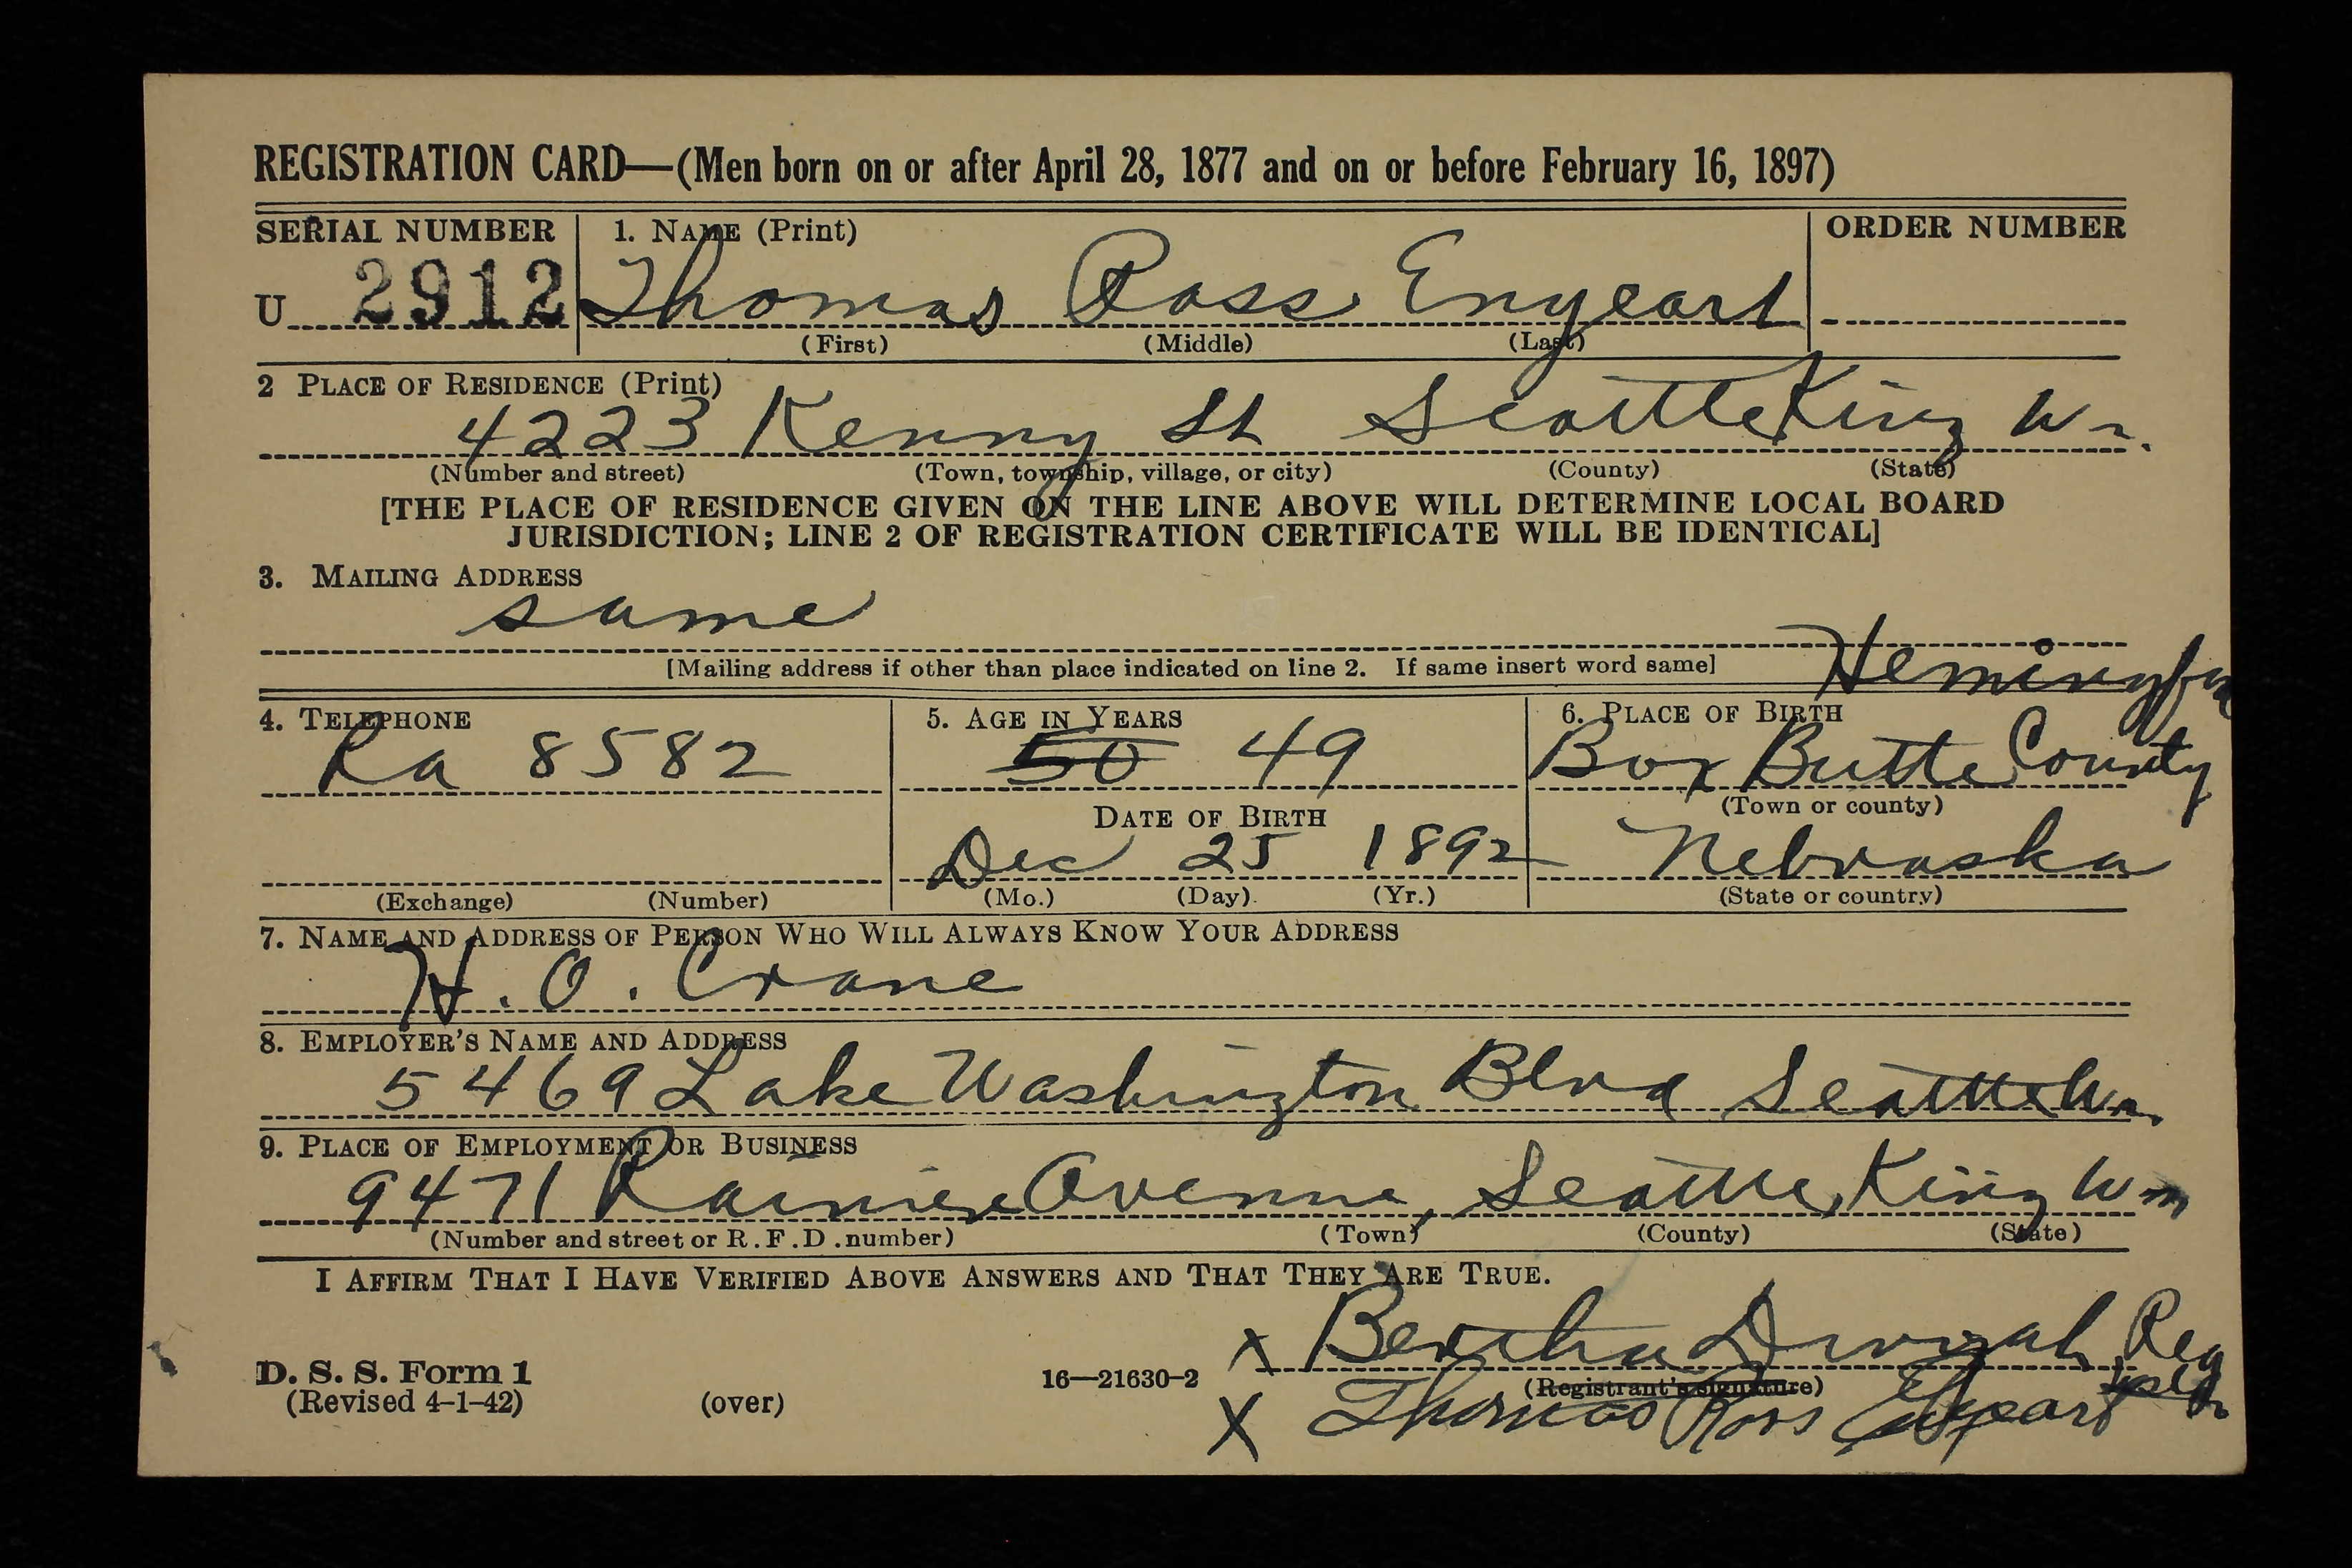 REGISTRATION CARD—(Men born on or after April 28, 1877 and on or before February 16, 1897)
SERIAL NUMBER 1. NAME (Print) ORDER NUMBER
U 2912 Thomas Ross Enyeart
(First) (Middle) (Last)
2 PLACE OF RESIDENCE (Print)
4223 Kenny St Seattle King Wn.
(Number and street) (Town, township, village, or city) (County) (State)
[THE PLACE OF RESIDENCE GIVEN ON THE LINE ABOVE WILL DETERMINE LOCAL BOARD
JURISDICTION; LINE 2 OF REGISTRATION CERTIFICATE WILL BE IDENTICAL]
3. MAILING ADDRESS
same
[Mailing address if other than place indicated on line 2. If same insert word same]
4. TELEPHONE 5. AGE IN YEARS 6. PLACE OF BIRTH
Ra 8582 50 49 Box Butte County
(Town or county)
DATE OF BIRTH
Dec 25 1892 Nebraska
(Exchange) (Number) (Mo.) (Day) (Yr.) (State or country)
7. NAME AND ADDRESS OF PERSON WHO WILL ALWAYS KNOW YOUR ADDRESS
H. O. Crane
8. EMPLOYER'S NAME AND ADDRESS
5469 Lake Washington Blvd Seattle Wn.
9. PLACE OF EMPLOYMENT OR BUSINESS
9471 Rainier Avenue, Seattle, King Wn
(Number and street or R.F.D. number) (Town) (County) (State)
I AFFIRM THAT I HAVE VERIFIED ABOVE ANSWERS AND THAT THEY ARE TRUE.
X Bertha
D. S. S. Form 1 16—21630-2 (Registrant's signature)
(Revised 4-1-42) (over) X Thomas Ross Enyeart